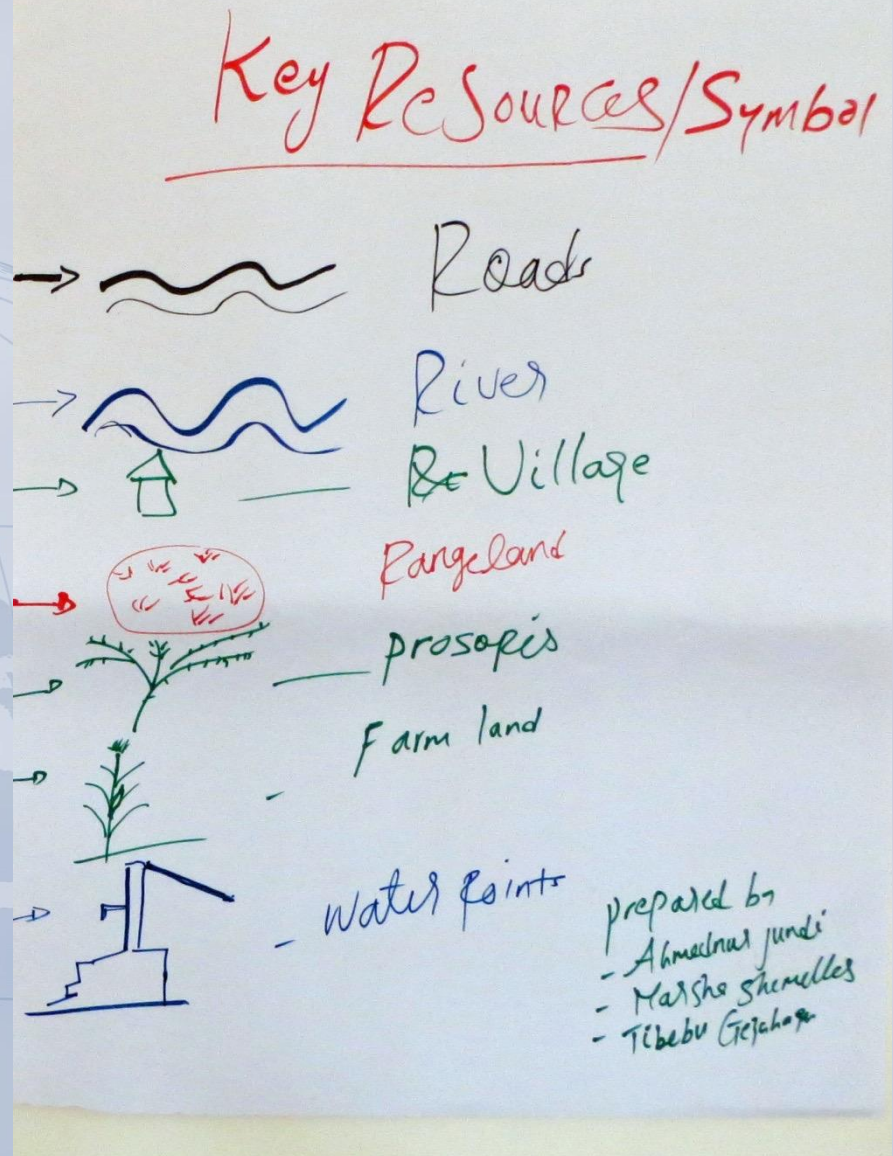 Key Resources/Symbol
Roads
River
Village
Rangeland
prosopis
Farm land
- Water Points
prepared by
- Ahmednur jundi
- Marshe Shemelles
- Tibebu